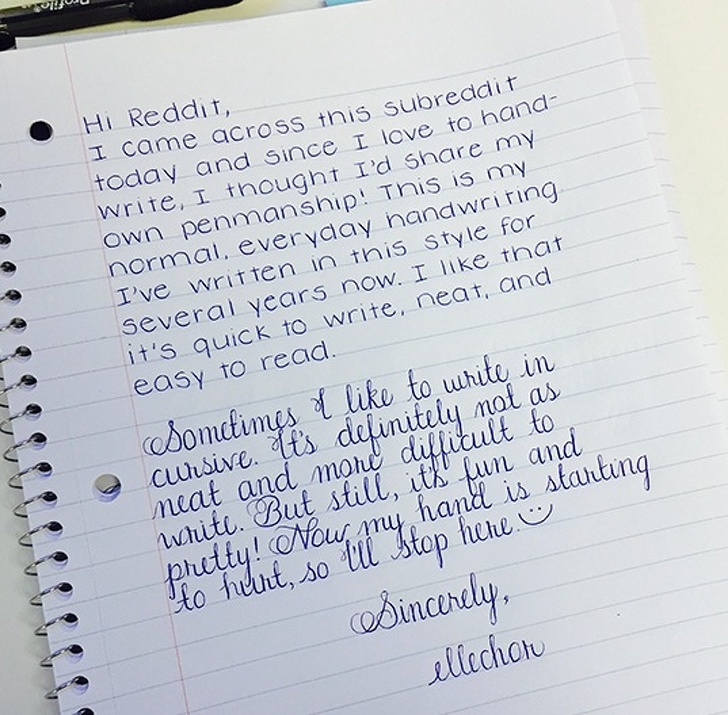 Profile
Hi Reddit,
I came across this subreddit
today and since I love to hand-
write, I thought I'd share my
own penmanship! This is my
normal, everyday handwriting
I've written in this style for
several years now. I like that
it's quick to write, neat, and
easy to read.
Sometimes I like to write in
cursive. It's definitely not as
neat and more difficult to
write. But still, it's fun and
pretty! Now my hand is starting
to hurt, so I'll stop here. :)
Sincerely,
ellechor